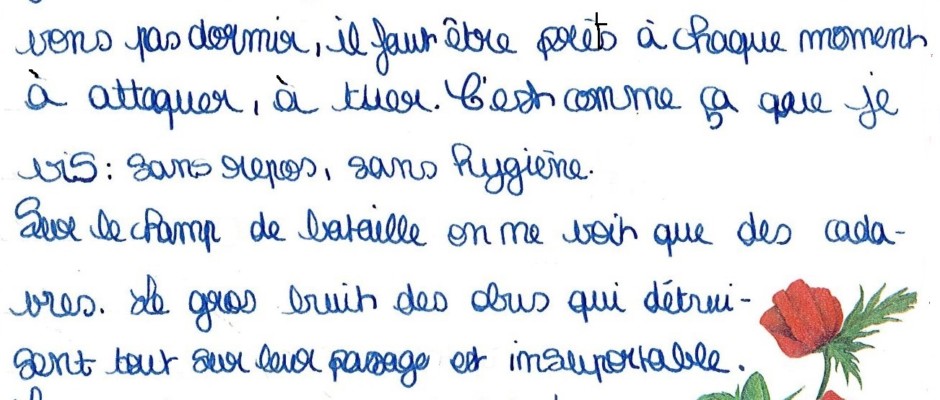 vons pas dormir, il faut être prêts à chaque moment
à attaquer, à tuer. C'est comme ça que je
vis : sans repos, sans hygiène.
Sur le champ de bataille on ne voit que des cada-
vres. Le gros bruit des obus qui détrui-
sent tout sur leur passage est insuportable.